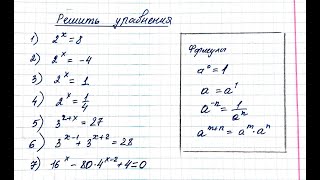 Решить уравнения
1) 2^x = 8
2) 2^x = -4
3) 2^x = 1
4) 2^x = 1/4
5) 3^(2+x) = 27
6) 3^(x-1) + 3^(x+2) = 28
7) 16^x - 80·4^(x-2) + 4 = 0
Формулы
a^0 = 1
a = a^1
a^(-n) = 1/a^n
a^(m+n) = a^m · a^n